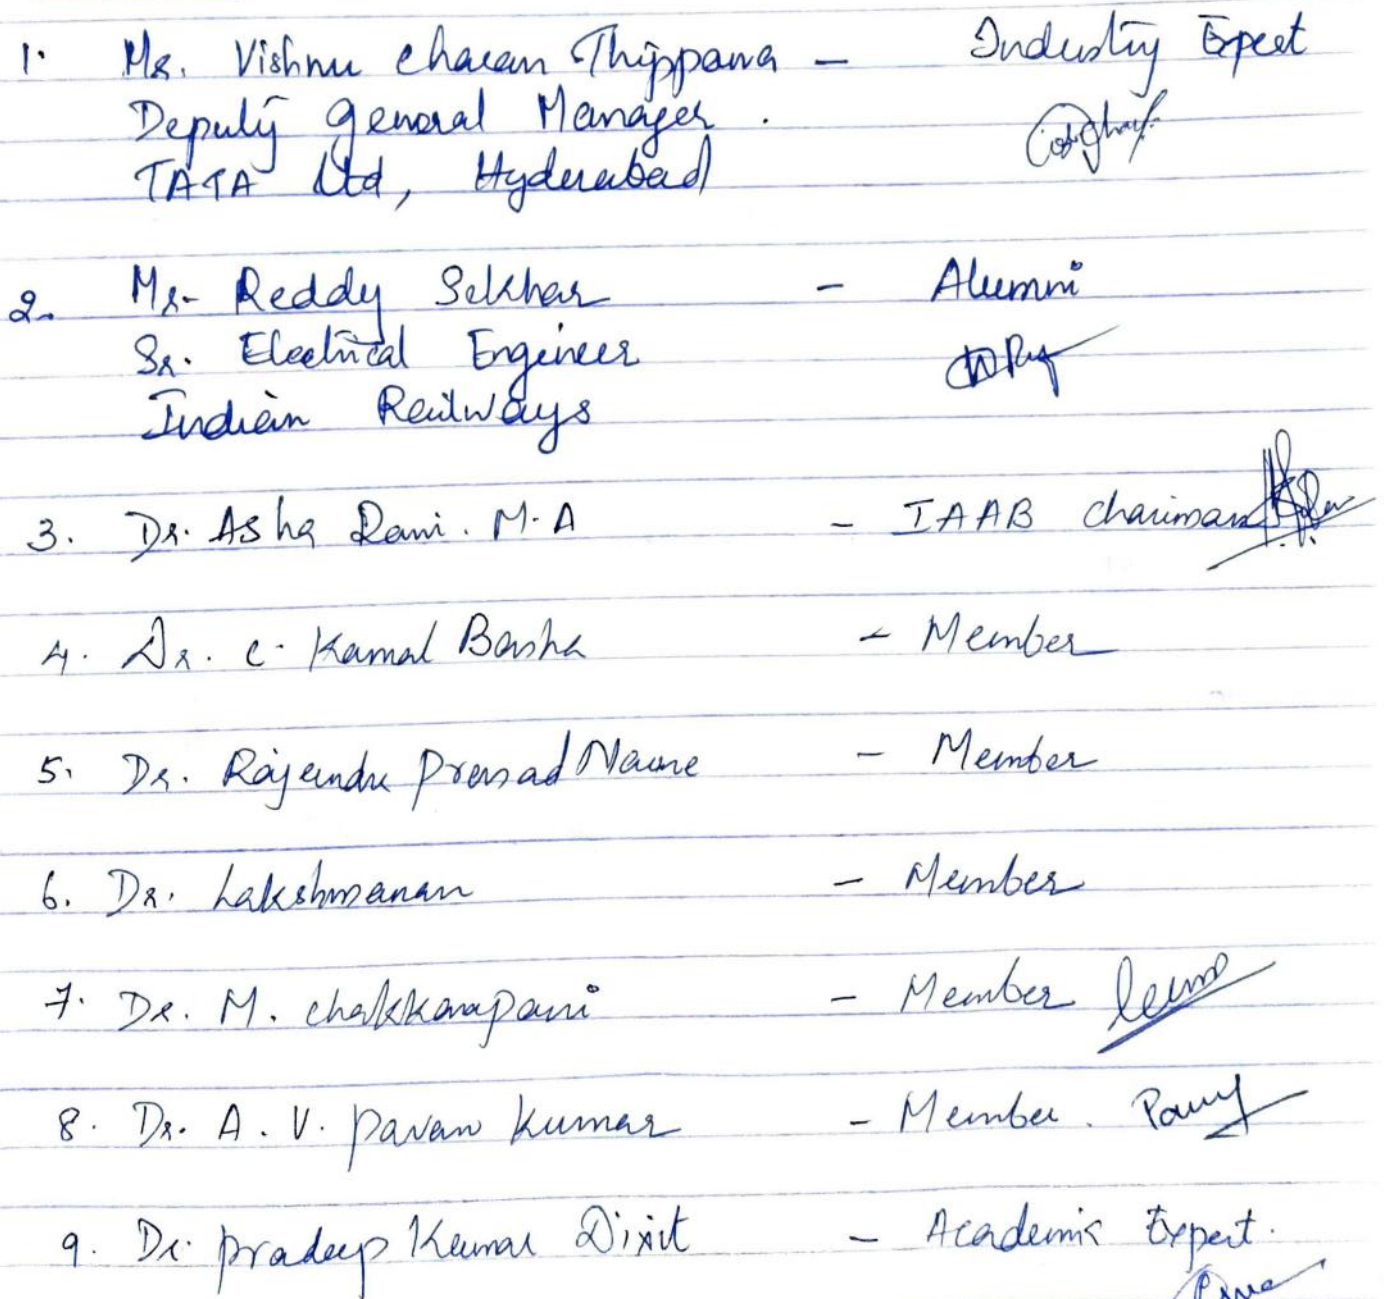 1. Mr. Vishnu Charan Thippana - Industry Expert
Deputy General Manager.
TATA Ltd, Hyderabad
2. Mr. Reddy Sekhar - Alumni
Sr. Electrical Engineer
Indian Railways
3. Dr. Asha Rani. M.A - IAAB Chariman
4. Dr. C. Kamal Basha - Member
5. Dr. Rajendra Prasad - Member
6. Dr. Lakshmanan - Member
7. Dr. M. Chakkarapani - Member
8. Dr. A. V. Pavan Kumar - Member.
9. Dr. Pradeep Kumar Dixit - Academic Expert.